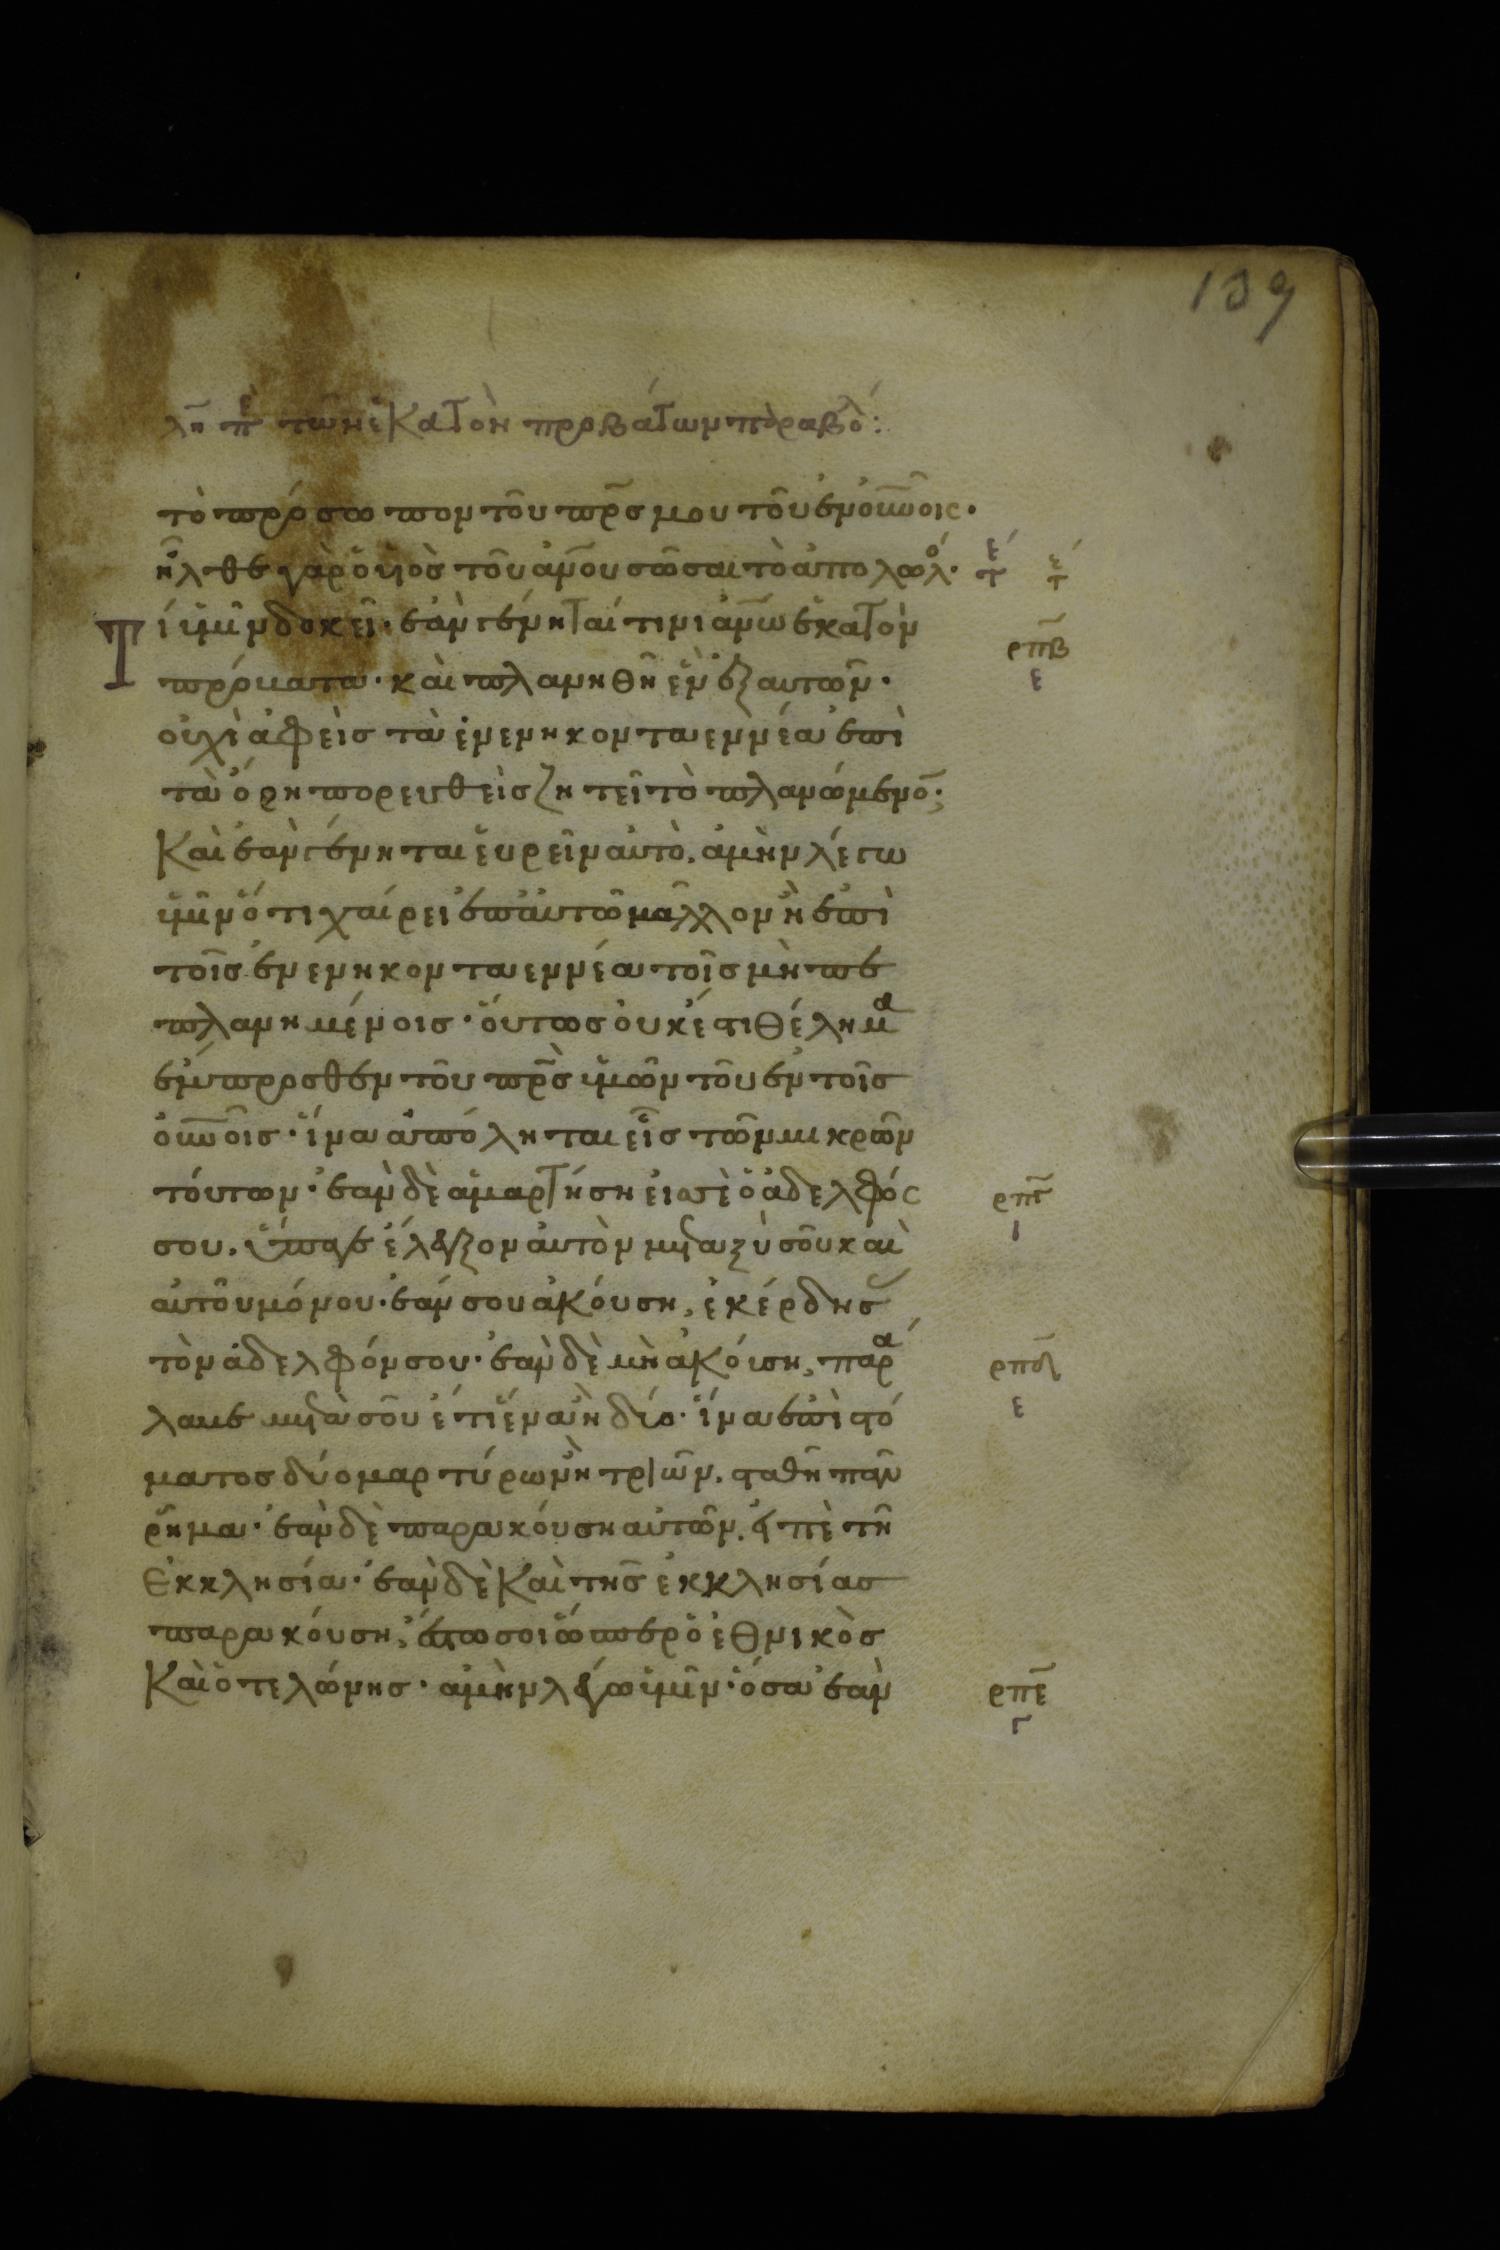 139
λη πε τῶν ἑκατὸν προβάτων παραβολ:
τὸ πρόσωπον τοῦ πρς μου τοῦ ἐν οὐνοις·
ἦλθε γὰρ ὁ υἱὸς τοῦ ἀνου σῶσαι τὸ ἀπολωλό· τε τε
Τί ὑμῖν δοκεῖ· ἐὰν γένηται τινι ἀνω ἑκατὸν ρπβ
πρόβατα· καὶ πλανηθῆ ἓν ἐξ αυτῶν· ε
οὐχὶ ἀφεὶς τὰ ἐνενηκονταεννέα ἐπὶ
τὰ ὄρη πορευθεὶς ζητεῖ τὸ πλανώμενο;
Καὶ ἐὰν γένηται εὑρεῖν αὐτὸ, ἀμὴν λέγω
ὑμῖν ὅτι χαίρει ἐπ αὐτῶ μᾶλλον ἢ ἐπὶ
τοῖς ἐνενηκονταεννέα τοῖς μὴ πε
πλανημένοις· οὕτως οὐκ ἔστι θέλημα
ἔμπροσθεν τοῦ πρς ὑμῶν τοῦ ἐν τοῖς
οὐνοις· ἵνα ἀπόληται εἷς τῶν μικρῶν
τούτων· ἐὰν δὲ ἁμαρτήση εἰς σὲ ὁ ἀδελφός ρπγ
σου, ὕπαγε ἔλεγξον αὐτὸν μεταξὺ σοῦ καὶ ι
αὐτοῦ μόνου· ἐάν σου ἀκούση, ἐκέρδησ
τὸν ἀδελφόν σου· ἐὰν δὲ μὴ ἀκούση, παρά ρπδ
λαβε μετὰ σοῦ ἔτι ἕνα ἢ δύο· ἵνα ἐπὶ στό ε
ματος δύο μαρτύρων ἢ τριῶν, σταθῆ πᾶν
ῥῆμα· ἐὰν δὲ παρακούση αὐτῶν, εἰπὲ τῆ
Ἐκκλησία· ἐὰν δὲ Καὶ της ἐκκλησίας
παρακούση, ἔστω σοι ὥσπερ ὁ ἐθνικὸς
Καὶ ὁ τελώνης· ἀμὴν λέγω ὑμῖν· ὅσα ἐὰν ρπε
γ